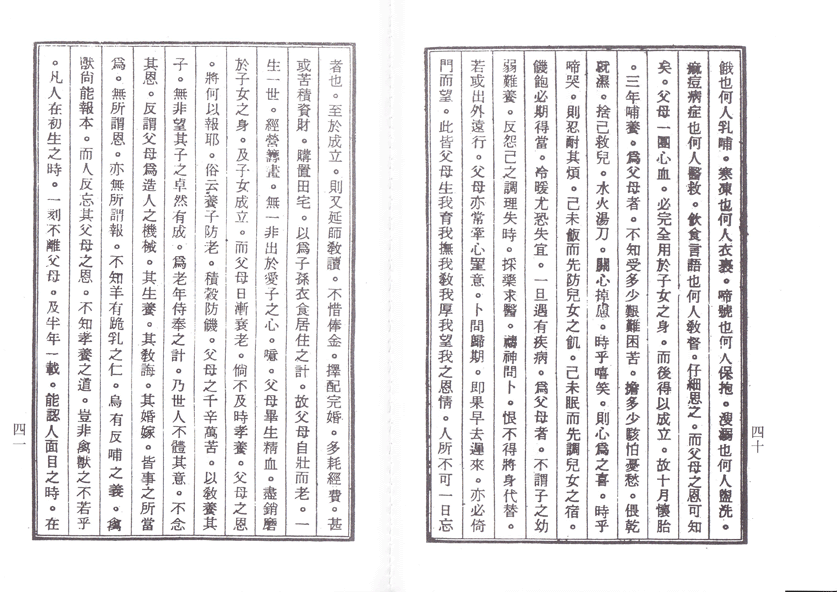 餓也何人乳哺。寒凍也何人衣裹。啼號也何人保抱。溲溺也何人盥洗。
痲痘病症也何人醫救。飲食言語也何人教督。仔細思之。而父母之恩可知
矣。父母一團心血。必完全用於子女之身。而後得以成立。故十月懷胎
。三年哺養。爲父母者。不知受多少艱難困苦。擔多少駭怕憂愁。偎乾
就濕。捨己救兒。水火湯刀。關心掉慮。時乎嘻笑。則心爲之喜。時乎
啼哭。則忍耐其煩。己未飯而先防兒女之飢。己未眠而先調兒女之宿。
饑飽必期得當。冷暖尤恐失宜。一旦遇有疾病。爲父母者。不謂子之幼
弱難養。反怨己之調理失時。採藥求醫。禱神問卜。恨不得將身代替。
若或出外遠行。父母亦常牽心罣意。卜問歸期。即果早去遲來。亦必倚
門而望。此皆父母生我育我撫我教我厚我望我之恩情。人所不可一日忘
四十
者也。至於成立。則又延師教讀。不惜俸金。擇配完婚。多耗經費。甚
或苦積資財。購置田宅。以爲子孫衣食居住之計。故父母自壯而老。一
生一世。經營籌畫。無一非出於愛子之心。噫。父母畢生精血。盡銷磨
於子女之身。及子女成立。而父母日漸衰老。倘不及時孝養。父母之恩
。將何以報耶。俗云養子防老。積穀防饑。父母之千辛萬苦。以教養其
子。無非望其子之卓然有成。爲老年侍奉之計。乃世人不體其意。不念
其恩。反謂父母爲造人之機械。其生養。其教誨。其婚嫁。皆事之所當
爲。無所謂恩。亦無所謂報。不知羊有跪乳之仁。烏有反哺之義。禽
獸尚能報本。而人反忘其父母之恩。不知孝養之道。豈非禽獸之不若乎
。凡人在初生之時。一刻不離父母。及半年一載。能認人面目之時。在
四一